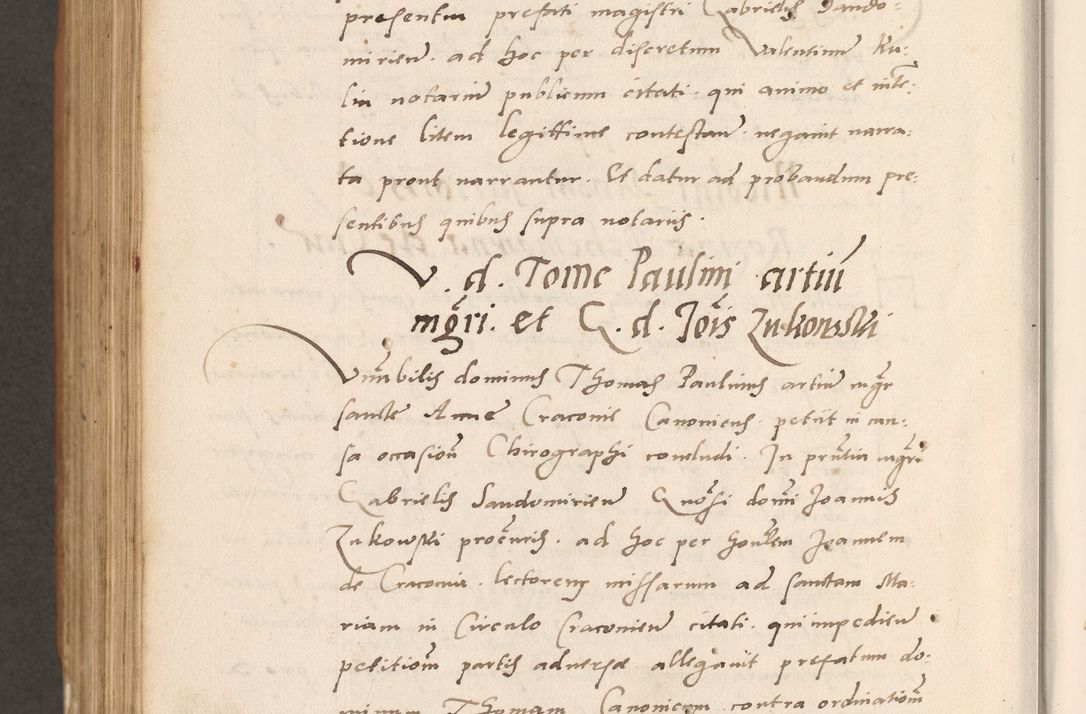 presentia prefati magistri Gabrielis Sando:
mirien̄. ad hoc per discretum Valentinū Ku:
lin notariū publicum citati. qui animo et intē:
tione litem legittime contestan̄. negavit narra:
ta prout narrantur. Et datur ad probandum pre:
sentibus quibus supra notariis.
V. d. Tome Paulini artiū
mḡri. et G. d. Joīs Zukowski
Vēnbilis dominus Thomas Paulinus artiū mgr̄
sancte Anne Craconie Canonicus. petiit in cau:
sa occasioñ Chirographi concludi. In prn̄tia mgr̄i
Gabrielis Sandomirien̄ Gnōsi domī Joannis
Zukowski procūris. ad hoc per hon̄lem Joannem
de Craconia. lectorem missarum ad sanctam Ma:
riam in Circulo Craconien̄ citati. qui impedien̄
petitiom̄ partis adverse allegavit prefatum do:
minum Thomam Canonicum contra ordinatiom̄